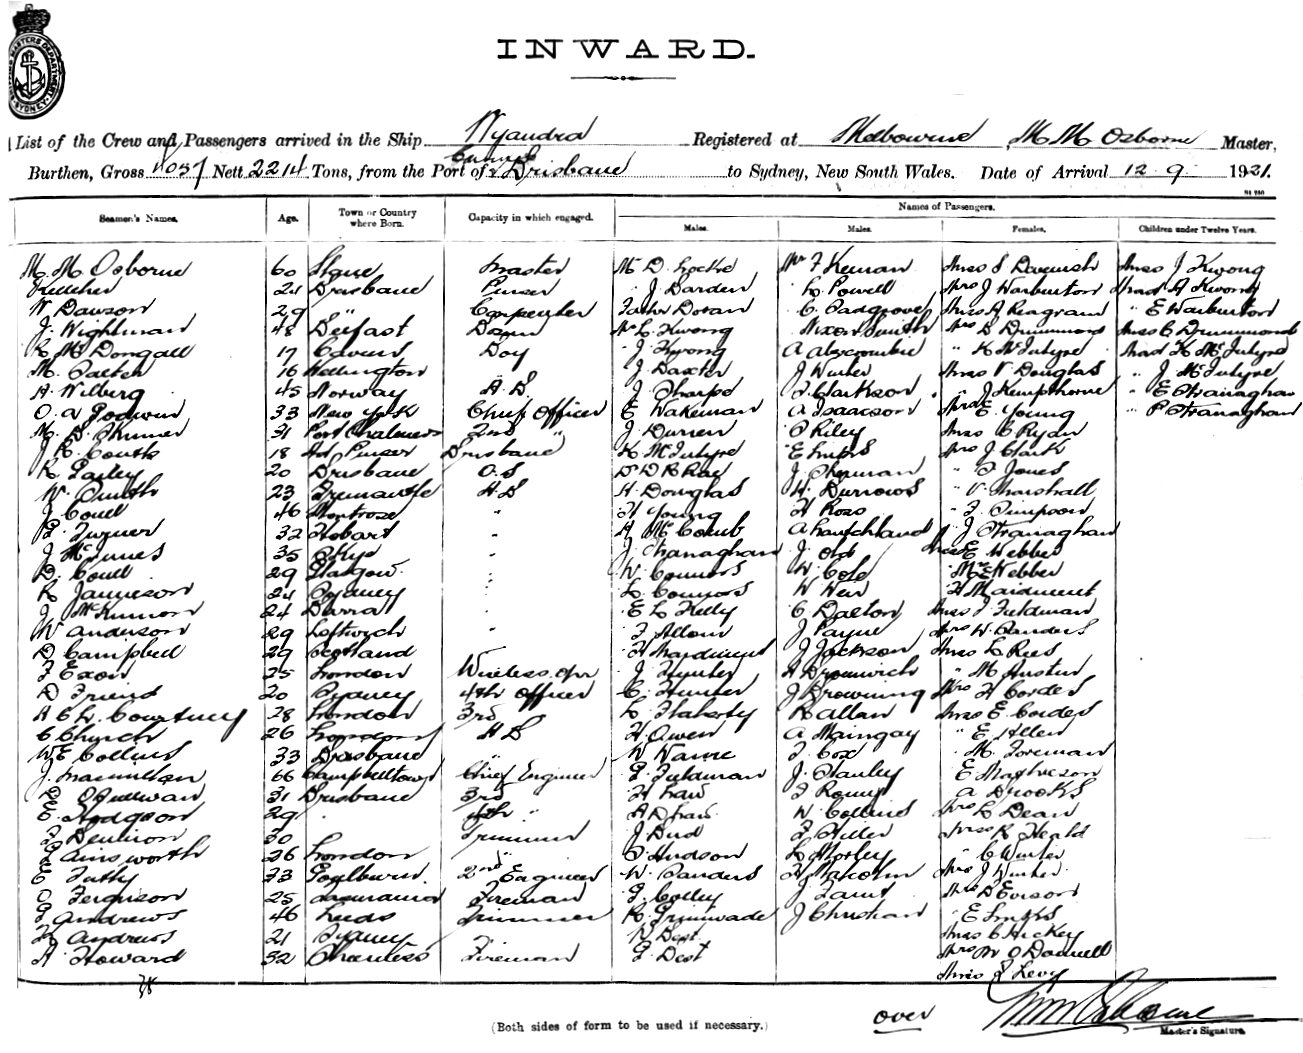 INWARD.
SHIPPING MASTERS DEPARTMENT SYDNEY
List of the Crew and Passengers arrived in the Ship Wyandra Registered at Melbourne M. M. Osborne Master,
Burthen, Gross 4057 Nett 2214 Tons, from the Port of Cairns & Brisbane to Sydney, New South Wales. Date of Arrival 12 9 1921.
Names of Passengers.
Seamen's Names. Age. Town or Country where Born. Capacity in which engaged. Males. Males. Females. Children under Twelve Years.
M. M. Osborne 60 Master Mr D. Locke Mr F Keenan Miss S Davenish Miss J Kwong
Kelleher 21 Brisbane Purser J. Darden L. Powell Mrs J Warburton A Kwong
W Dawson 29 " Carpenter Father Doran Miss A Reagram " E Warburton
J. Wightman 48 Belfast Mr L. Kwong Nixon Smith Mrs D Drummond Miss C Drummond
R McDongall 17 Boy J. Kwong A Abercrombie " K McIntyre K McIntyre
M. 16 Wellington J. Baxter J Winter Miss V Douglas " J McIntyre
A. Wilberg 45 Norway A B J Sharpe J. Clarkson " J Kempthorne " E Stranaghan
O. A Godwin 33 New York Chief Officer E Wakeman A Isaacson E. Young " P Stranaghan
M. S. Skinner 31 Port Chalmers 2nd " J Durren P Riley Miss C Ryan
J R. Coutts 18 Ast Purser Brisbane K McIntyre E Smyth Mrs J Clark
R Pasley 20 Brisbane O. S D D B Ray J. Sherman " J Jones
W. Smith 23 Fremantle A B H Douglas H. Burrows " V. Marshall
J Coull 46 Montrose " H Young H Ross " J. Simpson
E. Turner 32 Hobart " A McComb " J Stranaghan
J McInnes 35 Skye " J. Stranaghan J. Old E Webber
D. Coull 29 Glasgow " W Connors W. Cole " Webber
R Jamieson 24 Sydney " L Connors W Weir " H Maidment
J McKinnon 24 Barra " E L Kelly C Dalton Miss J Feldman
W Anderson 29 " J Allom J Payne Mrs W. Sanders
D Campbell 29 Scotland H Maidment J Jackson Miss L Rees
F Exon 25 London Wireless Opr J. Hunter A Bromwich " M Austin
D Friend 20 Sydney 4th Officer C. Hunter J Browning Mrs H Cordes
A C L. Courtney 28 London 3rd " L Flaherty R Allan Miss E Cordes
C Church 26 London A B H Owen A Maingay " E Allen
W E Collins 33 Brisbane " W Warne J. Cox " M. Foreman
J. Macmillan 66 Campbeltown Chief Engineer G Feldman J. Stanley E Mathieson
D O'Sullivan 31 Brisbane 3rd " H Law A Brooks
E. Hodgson 29 4th " A D Law W. Collins Mrs L Dean
J. Denison 30 Trimmer J Bird J. Hiller Miss R Heald
E Ainsworth 26 London " S Hudson L Morley " C Winter
E Tatty 33 Goulburn 2nd Engineer W. Sanders H Malcolm Mrs J Winter
J Ferguson 25 Fireman J. Colley J Faint Mrs D Everson
J Andrews 46 Leeds Trimmer R Grimwade J Christian " E Smyth
R Andrews 21 Sydney W Best Miss C Hickey
A Howard 32 Fireman G Best Mrs M O'Donnell
Miss S Levy
38
(Both sides of form to be used if necessary.)
over
M M Osborne
Master's Signature.